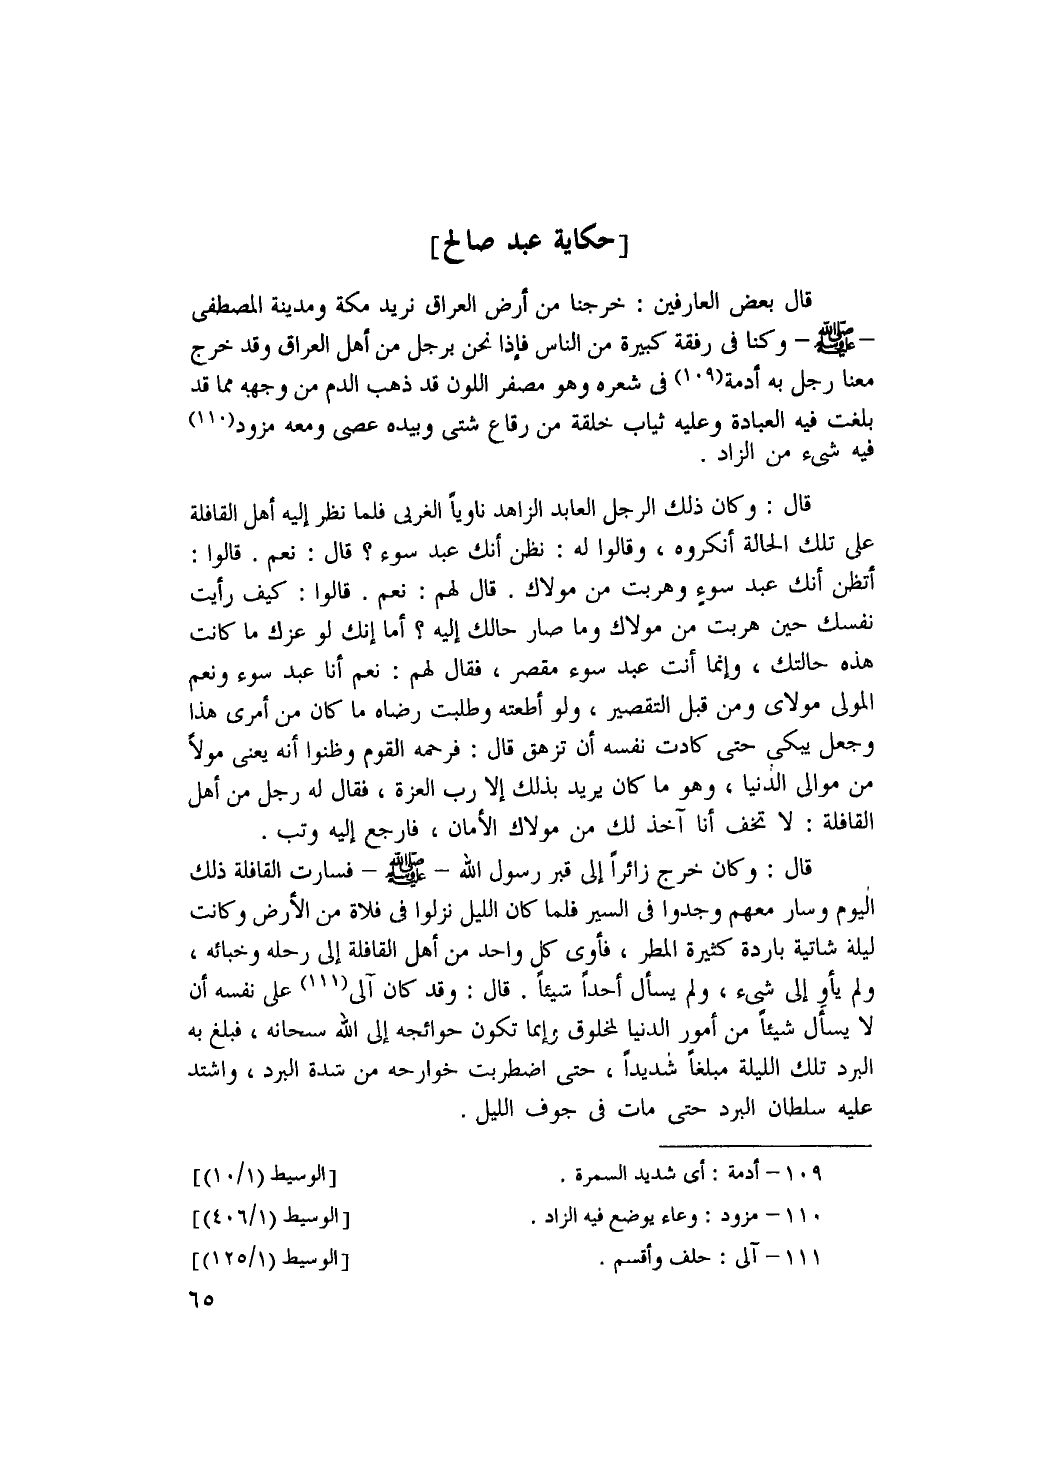 [حكاية عبد صالح]
قال بعض العارفين : خرجنا من أرض العراق نريد مكة ومدينة المصطفى
– ﷺ – وكنا فى رفقة كبيرة من الناس فإذا نحن برجل من أهل العراق وقد خرج
معنا رجل به أدمة(١٠٩) فى شعره وهو مصفر اللون قد ذهب الدم من وجهه مما قد
بلغت فيه العبادة وعليه ثياب خلقة من رقاع شتى وبيده عصى ومعه مزود(١١٠)
فيه شىء من الزاد .
قال : وكان ذلك الرجل العابد الزاهد ناوياً الغربى فلما نظر إليه أهل القافلة
على تلك الحالة أنكروه ، وقالوا له : نظن أنك عبد سوء ؟ قال : نعم . قالوا :
أتظن أنك عبد سوءٍ وهربت من مولاك . قال لهم : نعم . قالوا : كيف رأيت
نفسك حين هربت من مولاك وما صار حالك إليه ؟ أما إنك لو عزك ما كانت
هذه حالتك ، وإنما أنت عبد سوء مقصر ، فقال لهم : نعم أنا عبد سوء ونعم
المولى مولاى ومن قبل التقصير ، ولو أطعته وطلبت رضاه ما كان من أمرى هذا
وجعل يبكي حتى كادت نفسه أن تزهق قال : فرحمه القوم وظنوا أنه يعنى مولاً
من موالى الدنيا ، وهو ما كان يريد بذلك إلا رب العزة ، فقال له رجل من أهل
القافلة : لا تخف أنا آخذ لك من مولاك الأمان ، فارجع إليه وتب .
قال : وكان خرج زائراً إلى قبر رسول الله – ﷺ – فسارت القافلة ذلك
اليوم وسار معهم وجدوا فى السير فلما كان الليل نزلوا فى فلاة من الأرض وكانت
ليلة شاتية باردة كثيرة المطر ، فأوى كل واحد من أهل القافلة إلى رحله وخبائه ،
ولم يأوِ إلى شىء ، ولم يسأل أحداً شيئاً . قال : وقد كان آلى(١١١) على نفسه أن
لا يسأل شيئاً من أمور الدنيا لمخلوق وإنما تكون حوائجه إلى الله سبحانه ، فبلغ به
البرد تلك الليلة مبلغاً شديداً ، حتى اضطربت خوارحه من شدة البرد ، واشتد
عليه سلطان البرد حتى مات فى جوف الليل .
١٠٩– أدمة : أى شديد السمرة . [الوسيط (١٠/١)]
١١٠– مزود : وعاء يوضع فيه الزاد . [الوسيط (٤٠٦/١)]
١١١– آلى : حلف وأقسم . [الوسيط (١٢٥/١)]
٦٥